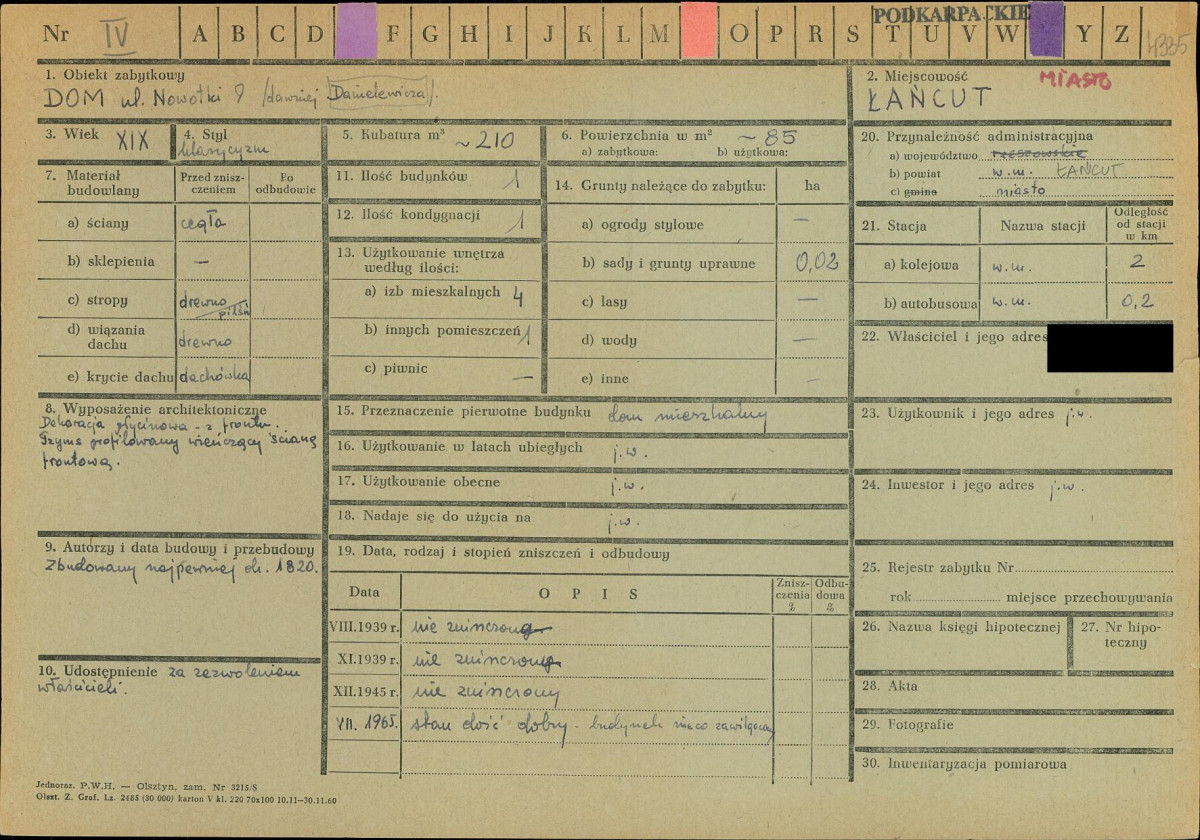 Nr IV A B C D F G H I J K L M O P R S T U V W Y Z
PODKARPACKIE
4335
1. Obiekt zabytkowy
DOM ul. Nowotki 9 /dawniej Danielewicza/.
2. Miejscowość MIASTO
ŁAŃCUT
3. Wiek XIX
4. Styl
klasycyzm
5. Kubatura m³ ~210
6. Powierzchnia w m² ~85
a) zabytkowa: b) użytkowa:
7. Materiał budowlany
Przed zniszczeniem
Po odbudowie
a) ściany cegła
b) sklepienia —
c) stropy drewno
d) wiązania dachu drewno
e) krycie dachu dachówka
8. Wyposażenie architektoniczne
Dekoracja płycinowa - z frontu.
Gzyms profilowany wieńczący ścianę
frontową.
9. Autorzy i data budowy i przebudowy
Zbudowany najpewniej ok. 1820.
10. Udostępnienie za zezwoleniem
właścicieli.
11. Ilość budynków 1
12. Ilość kondygnacji 1
13. Użytkowanie wnętrza
według ilości:
a) izb mieszkalnych 4
b) innych pomieszczeń 1
c) piwnic —
14. Grunty należące do zabytku: ha
a) ogrody stylowe —
b) sady i grunty uprawne 0,02
c) lasy —
d) wody —
e) inne —
15. Przeznaczenie pierwotne budynku dom mieszkalny
16. Użytkowanie w latach ubiegłych j.w.
17. Użytkowanie obecne j.w.
18. Nadaje się do użycia na j.w.
19. Data, rodzaj i stopień zniszczeń i odbudowy
Data OPIS Zniszczenia % Odbudowa %
VIII.1939 r. nie zniszczony
XI.1939 r. nie zniszczony
XII.1945 r. nie zniszczony
VII. 1965. stan dość dobry - budynek nieco zawilgocony
20. Przynależność administracyjna
a) województwo rzeszowskie
b) powiat w.m. ŁAŃCUT
c) gmina miasto
21. Stacja Nazwa stacji Odległość od stacji w km
a) kolejowa w.m. 2
b) autobusowa w.m. 0,2
22. Właściciel i jego adres
23. Użytkownik i jego adres j.w.
24. Inwestor i jego adres j.w.
25. Rejestr zabytku Nr
rok miejsce przechowywania
26. Nazwa księgi hipotecznej
27. Nr hipoteczny
28. Akta
29. Fotografie
30. Inwentaryzacja pomiarowa
Jednoraz. P.W.H. — Olsztyn, zam. Nr 3215/S
Olszt. Z. Graf. Lz. 2485 (30 000) karton V kl. 220 70x100 10.11—30.11.60